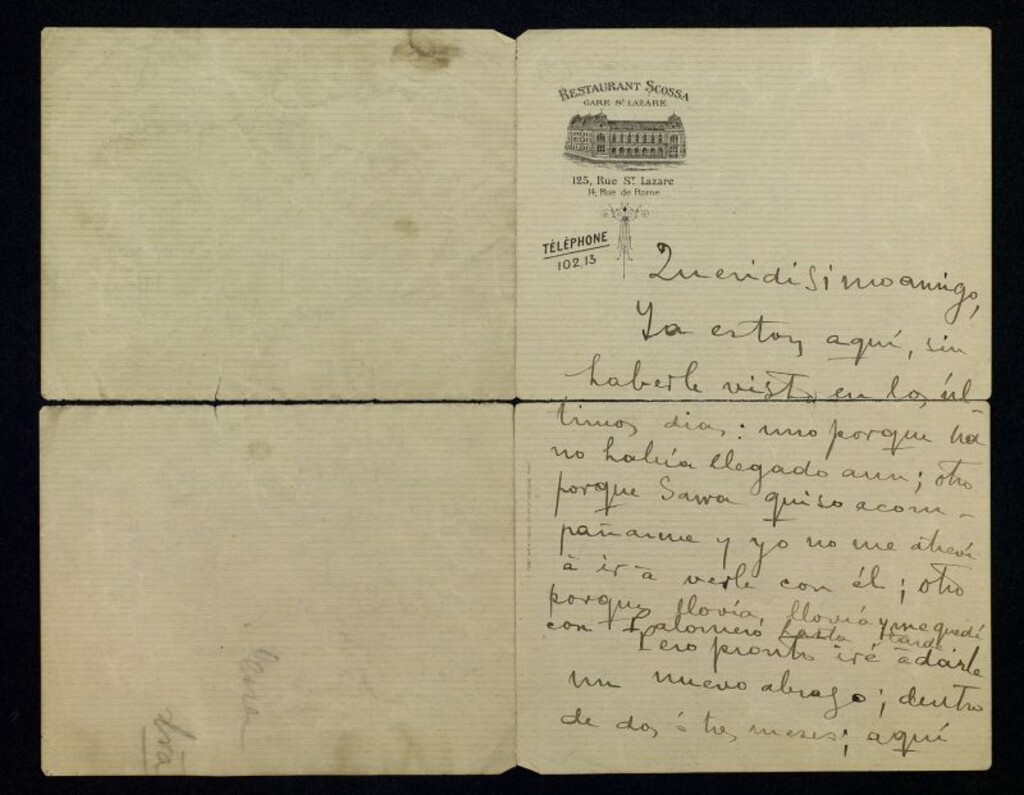 RESTAURANT SCOSSA
GARE St LAZARE
125, Rue St. Lazare
14, Rue de Rome
TÉLÉPHONE
102,13
Queridísimo amigo,
Ya estoy aquí, sin
haberle visto en los úl
timos dias: uno porque
no había llegado aun; otro
porque Sawa quiso acom-
pañarme y yo no me atreví
à ir à verle con él; otro
porque llovía, llovía y me quedé
con Palomero hasta tarde
Pero pronto iré à darle
un nuevo abrazo; dentro
de dos ó tres meses; aquí